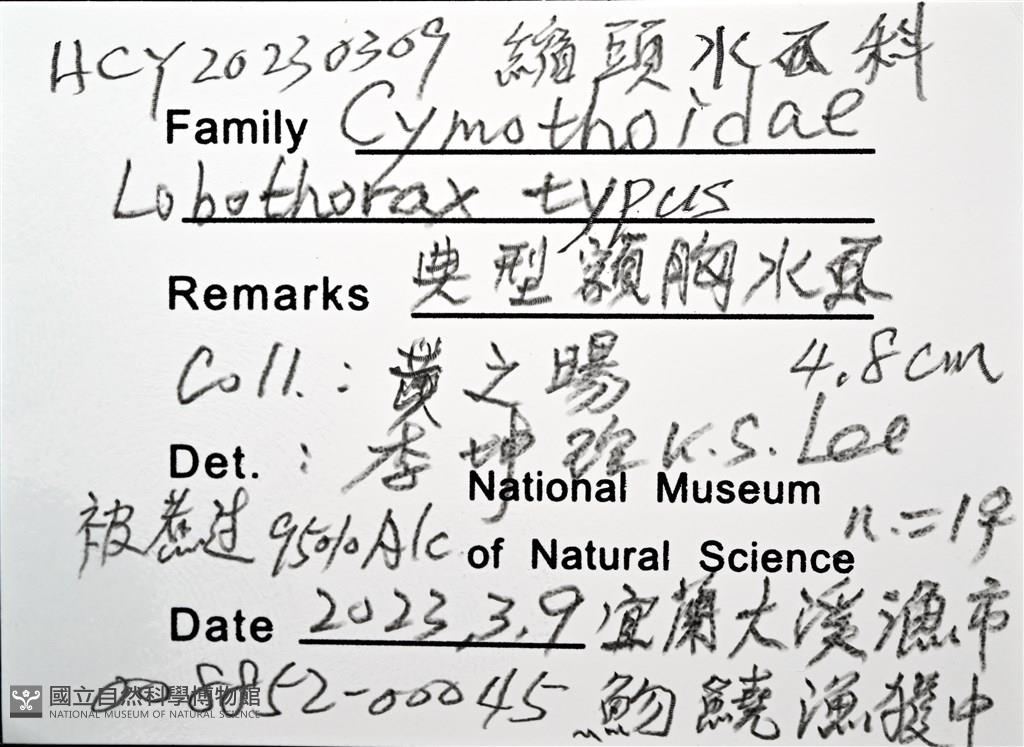 HCY20230309 縮頭水虱科
Family Cymothoidae
Lobothorax typus
Remarks 典型額胸水虱
Coll.: 黃之暘 4.8cm
Det.: 李坤瑄 K.S. Lee
National Museum
被煮过 95% Alc n.=1♀
of Natural Science
Date 2023.3.9 宜蘭大溪漁市
008852-00045 魩鱙漁獲中
國立自然科學博物館
NATIONAL MUSEUM OF NATURAL SCIENCE